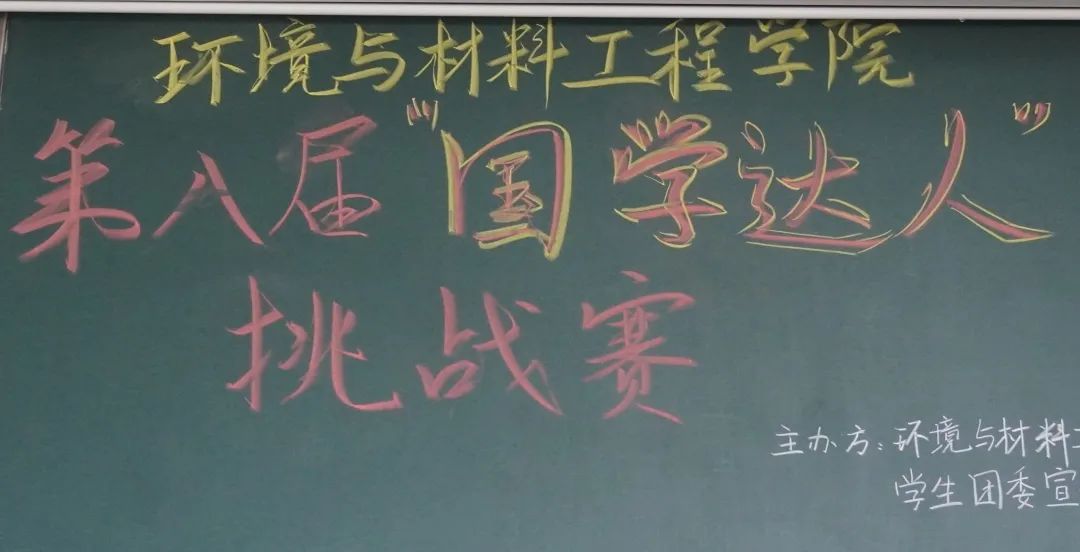 环境与材料工程学院
第八届“国学达人”
挑战赛
主办方:环境与材料
学生团委宣